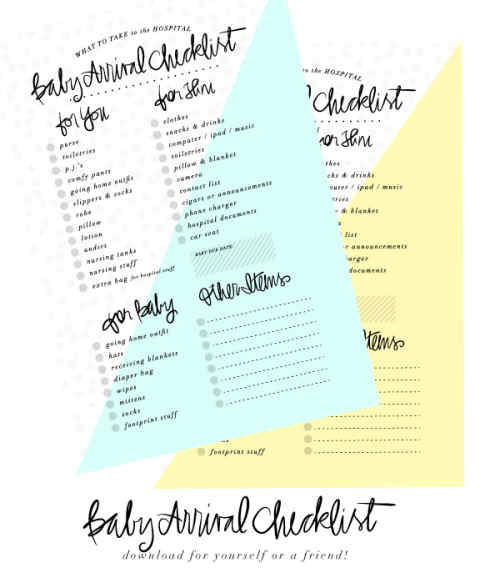 WHAT TO TAKE to the HOSPITAL
Baby Arrival Checklist
for You
purse
toiletries
p.j.'s
comfy pants
going home outfit
slippers & socks
robe
pillow
lotion
undies
nursing tanks
nursing stuff
extra bag for hospital stuff
for Him
clothes
snacks & drinks
computer / ipad / music
toiletries
pillow & blanket
camera
contact list
cigars or announcements
phone charger
hospital documents
car seat
BABY DUE DATE
for Baby
going home outfit
hats
receiving blankets
diaper bag
wipes
mittens
socks
footprint stuff
other Items
to the HOSPITAL
Checklist
for Him
thes
cks & drinks
puter / ipad / music
ries
& blanket
list
or announcements
harger
documents
Items
footprint stuff
Baby Arrival Checklist
download for yourself or a friend!